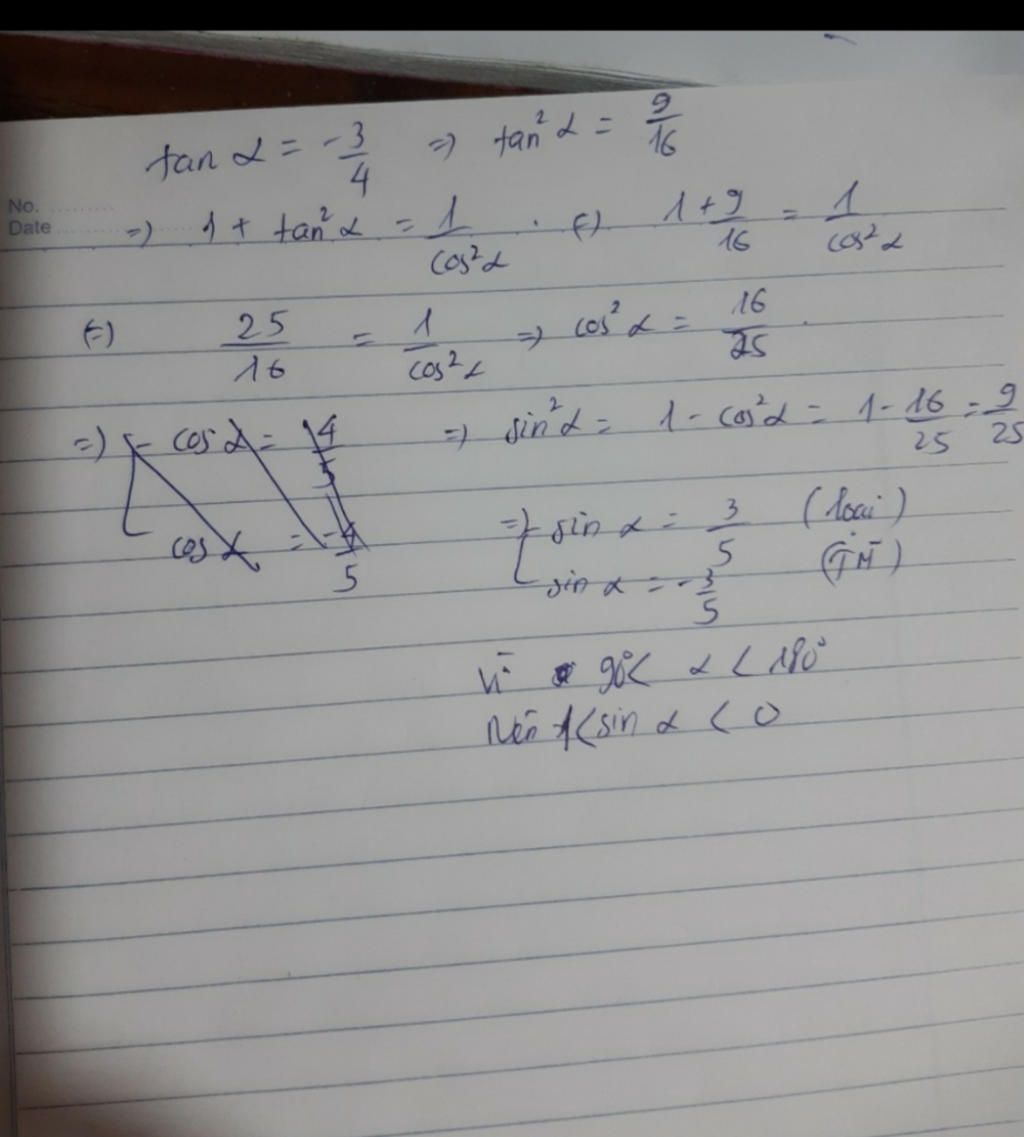 tan α = -3/4 => tan² α = 9/16
No.
Date
=> 1 + tan² α = 1/cos² α . (=) 1 + 9/16 = 1/cos² α
(=) 25/16 = 1/cos² α => cos² α = 16/25 .
=> [ cos α = 4/5 => sin² α = 1 - cos² α = 1 - 16/25 = 9/25
cos α = -4/5 => [ sin α = 3/5 (loại)
sin α = -3/5 (TM)
Vì 90° < α < 180°
Nên -1 < sin α < 0